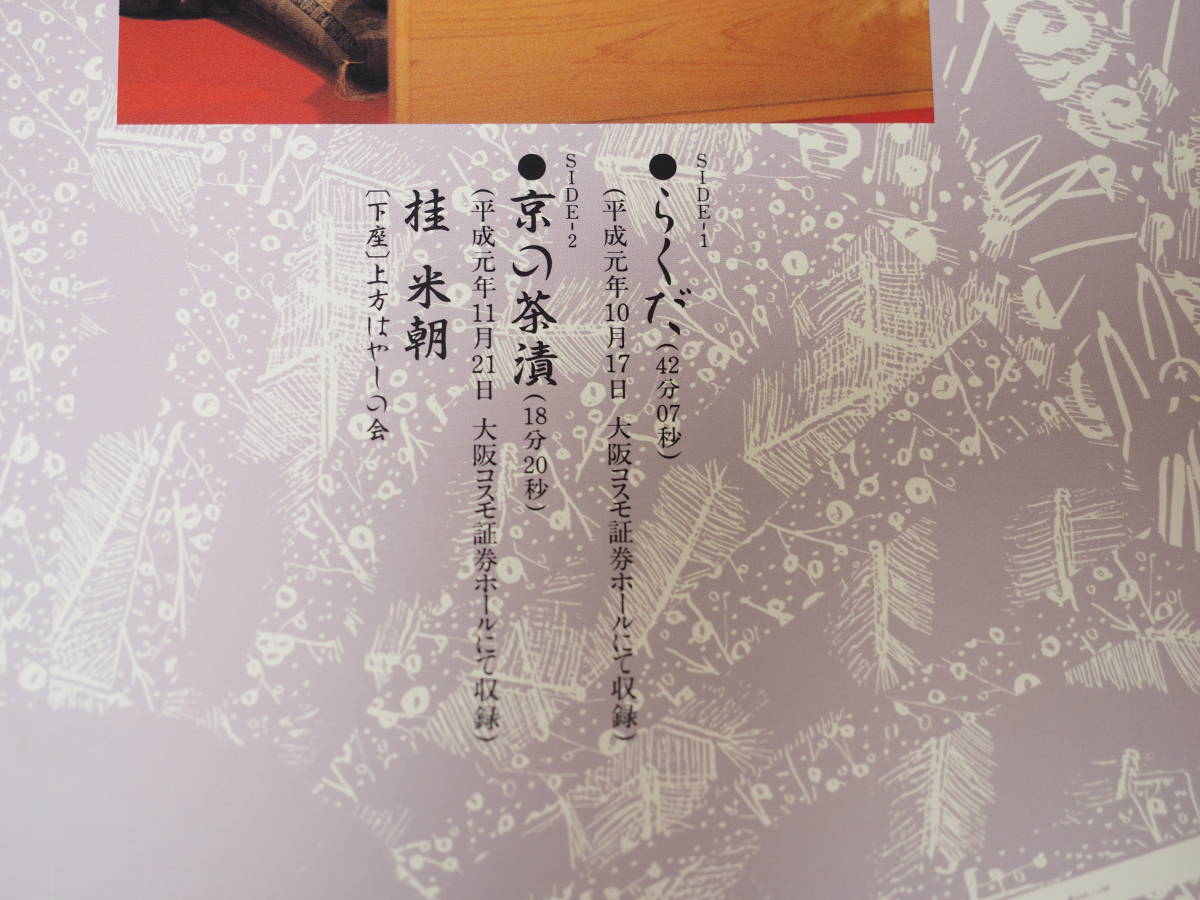 SIDE-1
●らくだ(42分07秒)
(平成元年10月17日 大阪コスモ証券ホールにて収録)
SIDE-2
●京の茶漬(18分20秒)
(平成元年11月21日 大阪コスモ証券ホールにて収録)
桂 米朝
〔下座〕上方はやしの会